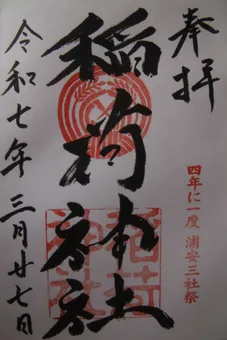 奉拝
四年に一度 浦安三社祭
稲荷神社
令和七年三月廿七日
稲荷神社